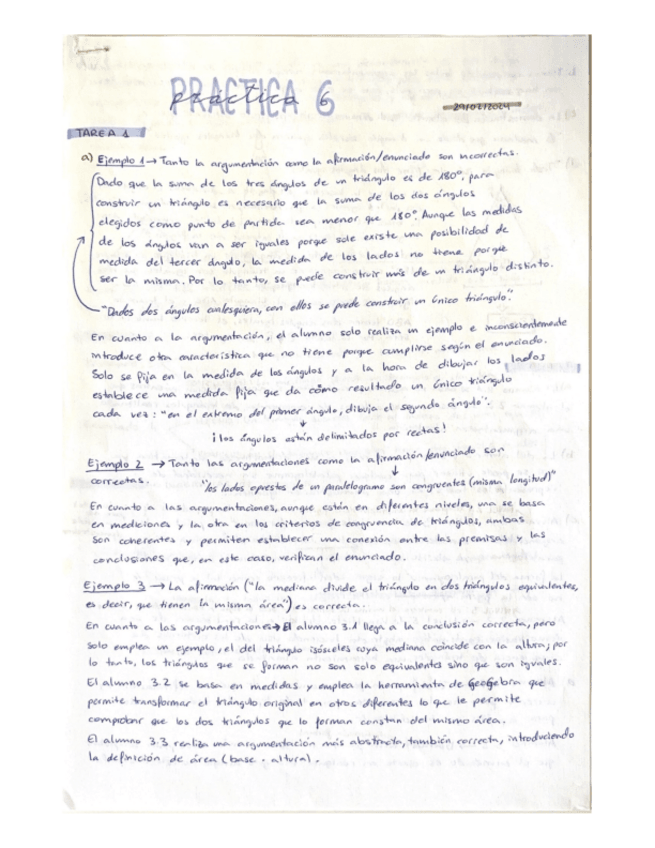 PRACTICA 6
practica
29/02/2024
TAREA 1
a) Ejemplo 1 → Tanto la argumentación como la afirmación/enunciado son incorrectas.
Dado que la suma de los tres ángulos de un triángulo es de 180º, para
construir un triángulo es necesario que la suma de los dos ángulos
elegidos como punto de partida sea menor que 180º. Aunque las medidas
de los ángulos van a ser iguales porque solo existe una posibilidad de
medida del tercer ángulo, la medida de los lados no tiene porque
ser la misma. Por lo tanto, se puede construir más de un triángulo distinto.
"Dados dos ángulos cualesquiera, con ellos se puede construir un único triángulo."
En cuanto a la argumentación, el alumno solo realiza un ejemplo e inconscientemente
introduce otra característica que no tiene porque cumplirse según el enunciado.
Solo se fija en la medida de los ángulos y a la hora de dibujar los lados
establece una medida fija que da como resultado un único triángulo
cada vez: "en el extremo del primer ángulo, dibuja el segundo ángulo".
↓
¡los ángulos están delimitados por rectas!
Ejemplo 2 → Tanto las argumentaciones como la afirmación/enunciado son
correctas.
↓
"los lados opuestos de un paralelogramo son congruentes (misma longitud)"
En cuanto a las argumentaciones, aunque están en diferentes niveles, una se basa
en mediciones y la otra en los criterios de congruencia de triángulos, ambas
son coherentes y permiten establecer una conexión entre las premisas y las
conclusiones que, en este caso, verifican el enunciado.
Ejemplo 3 → La afirmación ("la mediana divide el triángulo en dos triángulos equivalentes,
es decir, que tienen la misma área") es correcta.
En cuanto a las argumentaciones → El alumno 3.1 llega a la conclusión correcta, pero
solo emplea un ejemplo, el del triángulo isósceles cuya mediana coincide con la altura; por
lo tanto, los triángulos que se forman no son solo equivalentes sino que son iguales.
El alumno 3.2 se basa en medidas y emplea la herramienta de GeoGebra que
permite transformar el triángulo original en otros diferentes lo que le permite
comprobar que los dos triángulos que lo forman constan del mismo área.
El alumno 3.3 realiza una argumentación más abstracta, también correcta, introduciendo
la definición de área (base · altura).